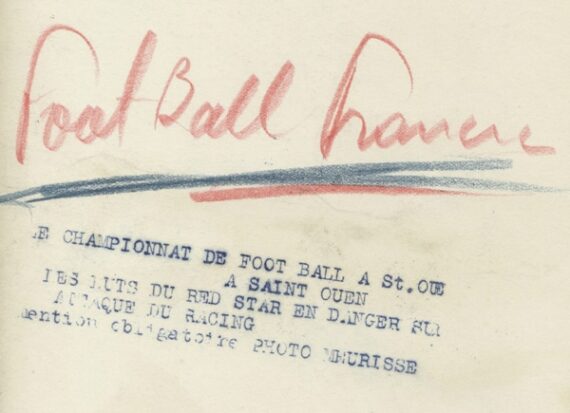 Foot Ball France
LE CHAMPIONNAT DE FOOT BALL A St.OUE
A SAINT OUEN
LES BUTS DU RED STAR EN DANGER SUR
ATTAQUE DU RACING
mention obligatoire PHOTO MEURISSE